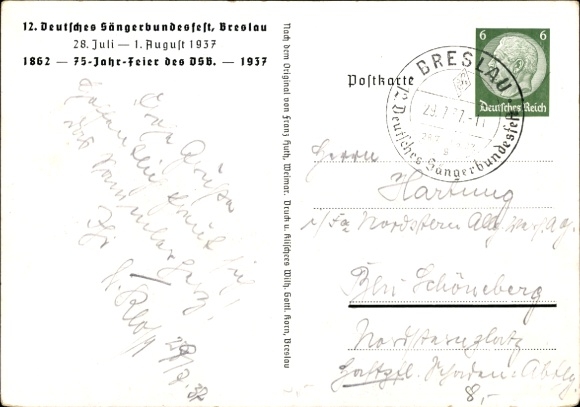 12. Deutsches Sängerbundesfest, Breslau
28. Juli — 1. August 1937
1862 — 75-Jahr-Feier des DSB. — 1937
Nach dem Original von Franz Huth, Weimar. Druck u. Klischees Wilh. Gottl. Korn, Breslau
Postkarte
6 6
Deutsches Reich
BRESLAU
29.7.37
12. Deutsches Sängerbundesfest
Herrn
Hartung
i/Fa Nordstern Allg. Vers. A.G.
Bln Schöneberg
Nordsternplatz
Haftpfl. Schaden-Abtlg.
8,-
Ihr
29/7.37